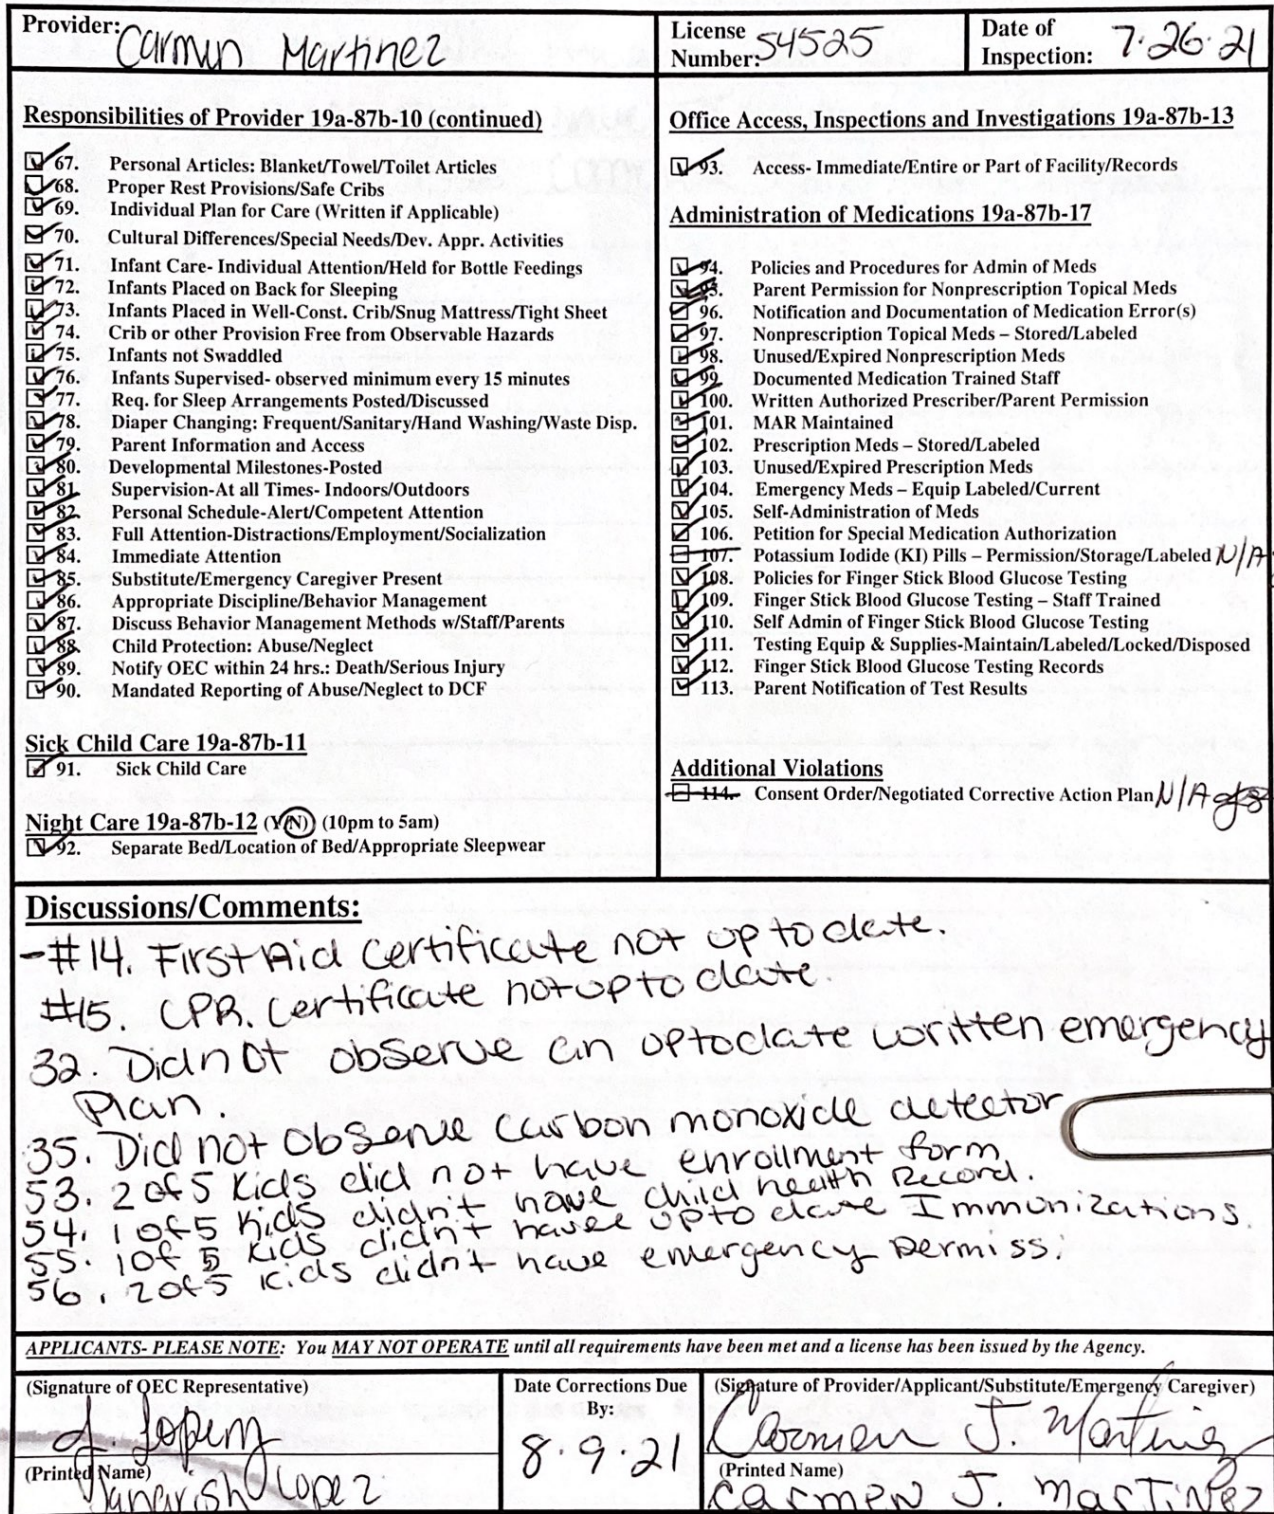 Provider: Carmen Martinez
License Number: 54525
Date of Inspection: 7.26.21
Responsibilities of Provider 19a-87b-10 (continued)
67. Personal Articles: Blanket/Towel/Toilet Articles
68. Proper Rest Provisions/Safe Cribs
69. Individual Plan for Care (Written if Applicable)
70. Cultural Differences/Special Needs/Dev. Appr. Activities
71. Infant Care- Individual Attention/Held for Bottle Feedings
72. Infants Placed on Back for Sleeping
73. Infants Placed in Well-Const. Crib/Snug Mattress/Tight Sheet
74. Crib or other Provision Free from Observable Hazards
75. Infants not Swaddled
76. Infants Supervised- observed minimum every 15 minutes
77. Req. for Sleep Arrangements Posted/Discussed
78. Diaper Changing: Frequent/Sanitary/Hand Washing/Waste Disp.
79. Parent Information and Access
80. Developmental Milestones-Posted
81. Supervision-At all Times- Indoors/Outdoors
82. Personal Schedule-Alert/Competent Attention
83. Full Attention-Distractions/Employment/Socialization
84. Immediate Attention
85. Substitute/Emergency Caregiver Present
86. Appropriate Discipline/Behavior Management
87. Discuss Behavior Management Methods w/Staff/Parents
88. Child Protection: Abuse/Neglect
89. Notify OEC within 24 hrs.: Death/Serious Injury
90. Mandated Reporting of Abuse/Neglect to DCF
Sick Child Care 19a-87b-11
91. Sick Child Care
Night Care 19a-87b-12 (Y/N) (10pm to 5am)
92. Separate Bed/Location of Bed/Appropriate Sleepwear
Office Access, Inspections and Investigations 19a-87b-13
93. Access- Immediate/Entire or Part of Facility/Records
Administration of Medications 19a-87b-17
94. Policies and Procedures for Admin of Meds
95. Parent Permission for Nonprescription Topical Meds
96. Notification and Documentation of Medication Error(s)
97. Nonprescription Topical Meds – Stored/Labeled
98. Unused/Expired Nonprescription Meds
99. Documented Medication Trained Staff
100. Written Authorized Prescriber/Parent Permission
101. MAR Maintained
102. Prescription Meds – Stored/Labeled
103. Unused/Expired Prescription Meds
104. Emergency Meds – Equip Labeled/Current
105. Self-Administration of Meds
106. Petition for Special Medication Authorization
107. Potassium Iodide (KI) Pills – Permission/Storage/Labeled N/A
108. Policies for Finger Stick Blood Glucose Testing
109. Finger Stick Blood Glucose Testing – Staff Trained
110. Self Admin of Finger Stick Blood Glucose Testing
111. Testing Equip & Supplies-Maintain/Labeled/Locked/Disposed
112. Finger Stick Blood Glucose Testing Records
113. Parent Notification of Test Results
Additional Violations
114. Consent Order/Negotiated Corrective Action Plan N/A
Discussions/Comments:
-#14. First Aid Certificate not up to date.
#15. CPR. Certificate not up to date.
32. Did not observe an up to date written emergency
Plan.
35. Did not observe carbon monoxide detector
53. 2 of 5 Kids did not have enrollment form.
54. 1 of 5 kids didn't have child health Record.
55. 1 of 5 kids didn't havee up to date Immunizations.
56. 2 of 5 kids didn't have emergency permiss.
APPLICANTS- PLEASE NOTE: You MAY NOT OPERATE until all requirements have been met and a license has been issued by the Agency.
(Signature of OEC Representative)
J. Lopez
(Printed Name)
Lopez
Date Corrections Due By:
8.9.21
(Signature of Provider/Applicant/Substitute/Emergency Caregiver)
Carmen J. Martinez
(Printed Name)
Carmen J. Martinez